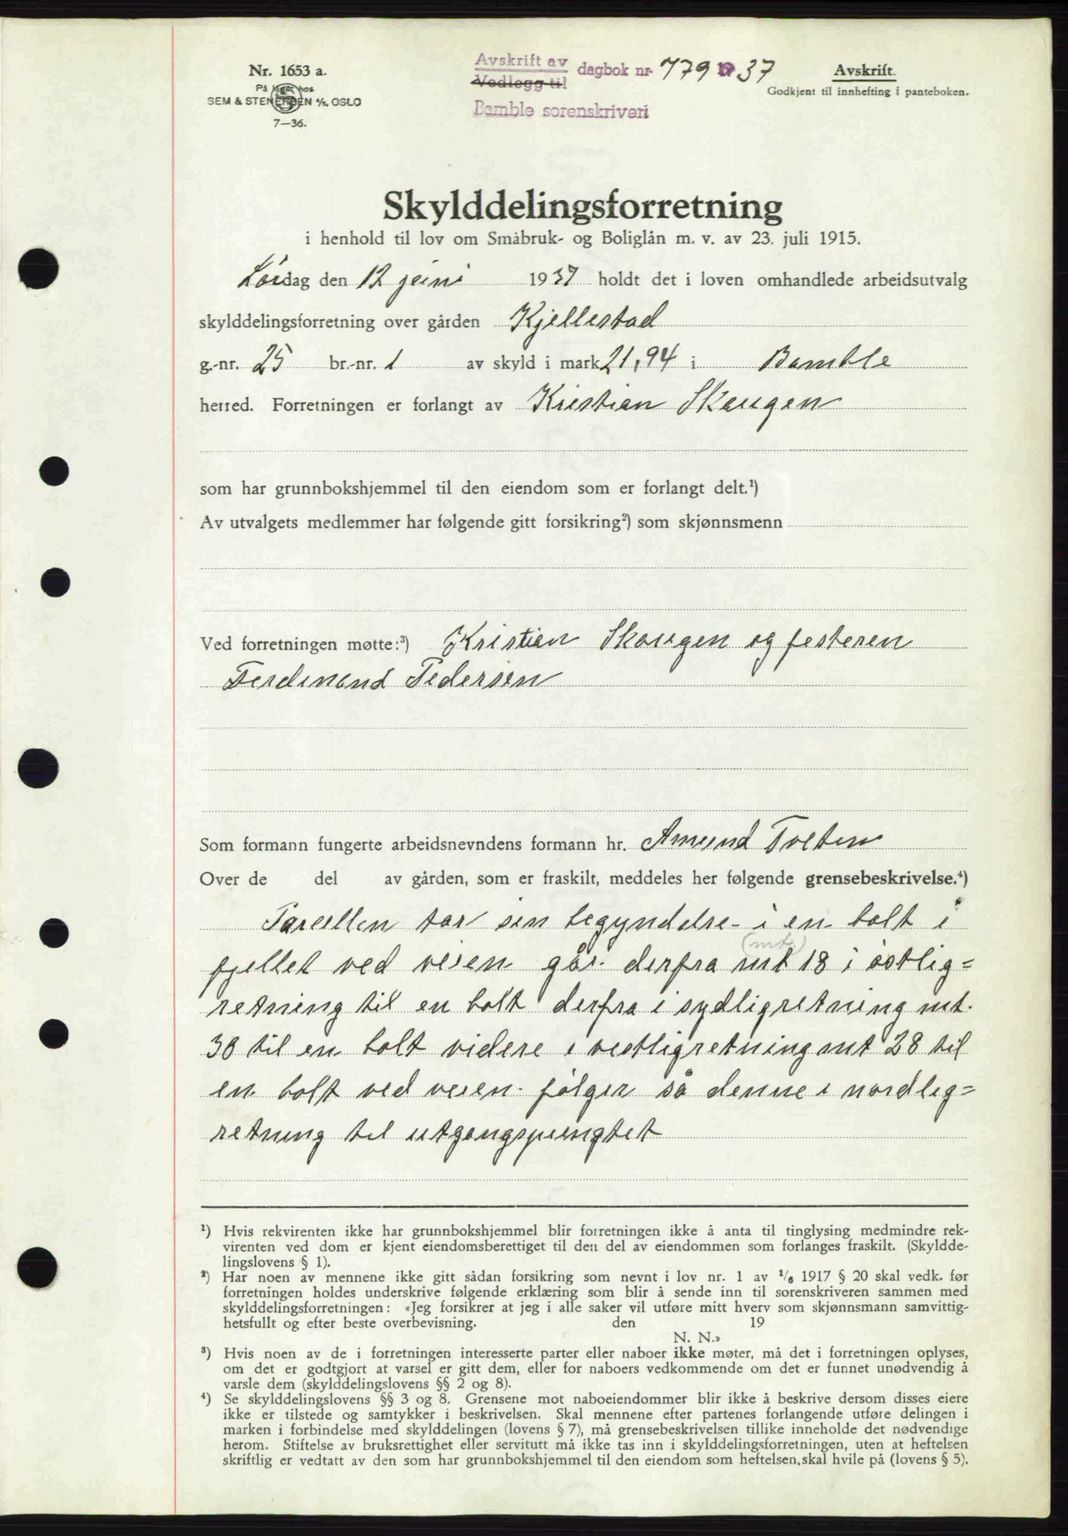 Nr. 1653 a.
På lager hos
SEM & STENERSEN A/S, OSLO
7—36.
Avskrift av
Vedlegg til
dagbok nr. 779 1937
Bamble sorenskriveri
Avskrift.
Godkjent til innhefting i panteboken.
Skylddelingsforretning
i henhold til lov om Småbruk- og Boliglån m. v. av 23. juli 1915.
Lørdag den 12 juni 1937 holdt det i loven omhandlede arbeidsutvalg
skylddelingsforretning over gården Kjellestad
g.-nr. 25 br.-nr. 1 av skyld i mark 21,94 i Bamble
herred. Forretningen er forlangt av Kristian Skaugen
som har grunnbokshjemmel til den eiendom som er forlangt delt.¹)
Av utvalgets medlemmer har følgende gitt forsikring²) som skjønnsmenn
Ved forretningen møtte:³) Kristian Skaugen og festeren
Ferdinand Pedersen
Som formann fungerte arbeidsnevndens formann hr. Amund Tveten
Over de del av gården, som er fraskilt, meddeles her følgende grensebeskrivelse.⁴)
Parcellen tar sin begyndelse i en bolt i
fjellet ved veien går derfra mt (mtr) 18 i østlig=
retning til en bolt derfra i sydligretning mt.
30 til en bolt videre i vestligretning mt 28 til
en bolt ved veien følger så denne i nordlig=
retning til utgangspungtet
¹) Hvis rekvirenten ikke har grunnbokshjemmel blir forretningen ikke å anta til tinglysing medmindre rek-
virenten ved dom er kjent eiendomsberettiget til den del av eiendommen som forlanges fraskilt. (Skyldde-
lingslovens § 1).
²) Har noen av mennene ikke gitt sådan forsikring som nevnt i lov nr. 1 av ¹/₆ 1917 § 20 skal vedk. før
forretningen holdes underskrive følgende erklæring som blir å sende inn til sorenskriveren sammen med
skylddelingsforretningen: «Jeg forsikrer at jeg i alle saker vil utføre mitt hverv som skjønnsmann samvittig-
hetsfullt og efter beste overbevisning. den 19
N. N.»
³) Hvis noen av de i forretningen interesserte parter eller naboer ikke møter, må det i forretningen oplyses,
om det er godtgjort at varsel er gitt dem, eller for naboers vedkommende om det er funnet unødvendig å
varsle dem (skylddelingslovens §§ 2 og 8).
⁴) Se skylddelingslovens §§ 3 og 8. Grensene mot naboeiendommer blir ikke å beskrive dersom disses eiere
ikke er tilstede og samtykker i beskrivelsen. Skal mennene efter partenes forlangende utføre delingen i
marken i forbindelse med skylddelingen (lovens § 7), må grensebeskrivelsen tillike inneholde det nødvendige
herom. Stiftelse av bruksrettighet eller servitutt må ikke tas inn i skylddelingsforretningen, uten at heftelsen
skriftlig er vedtatt av den som har grunnbokshjemmel til den eiendom som heftelsen skal hvile på (lovens § 5).